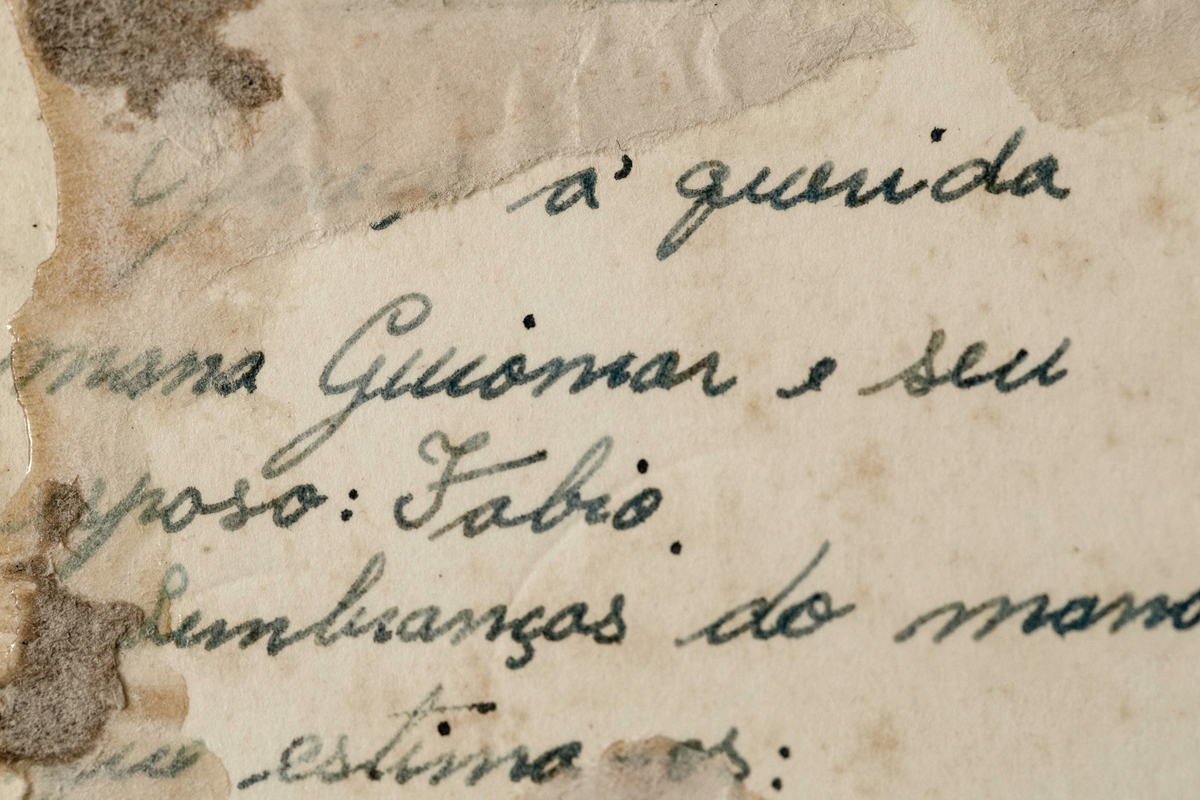 á querida
mana Guiomar e seu
esposo: Fabio.
Lembranças do mano
que estima os: